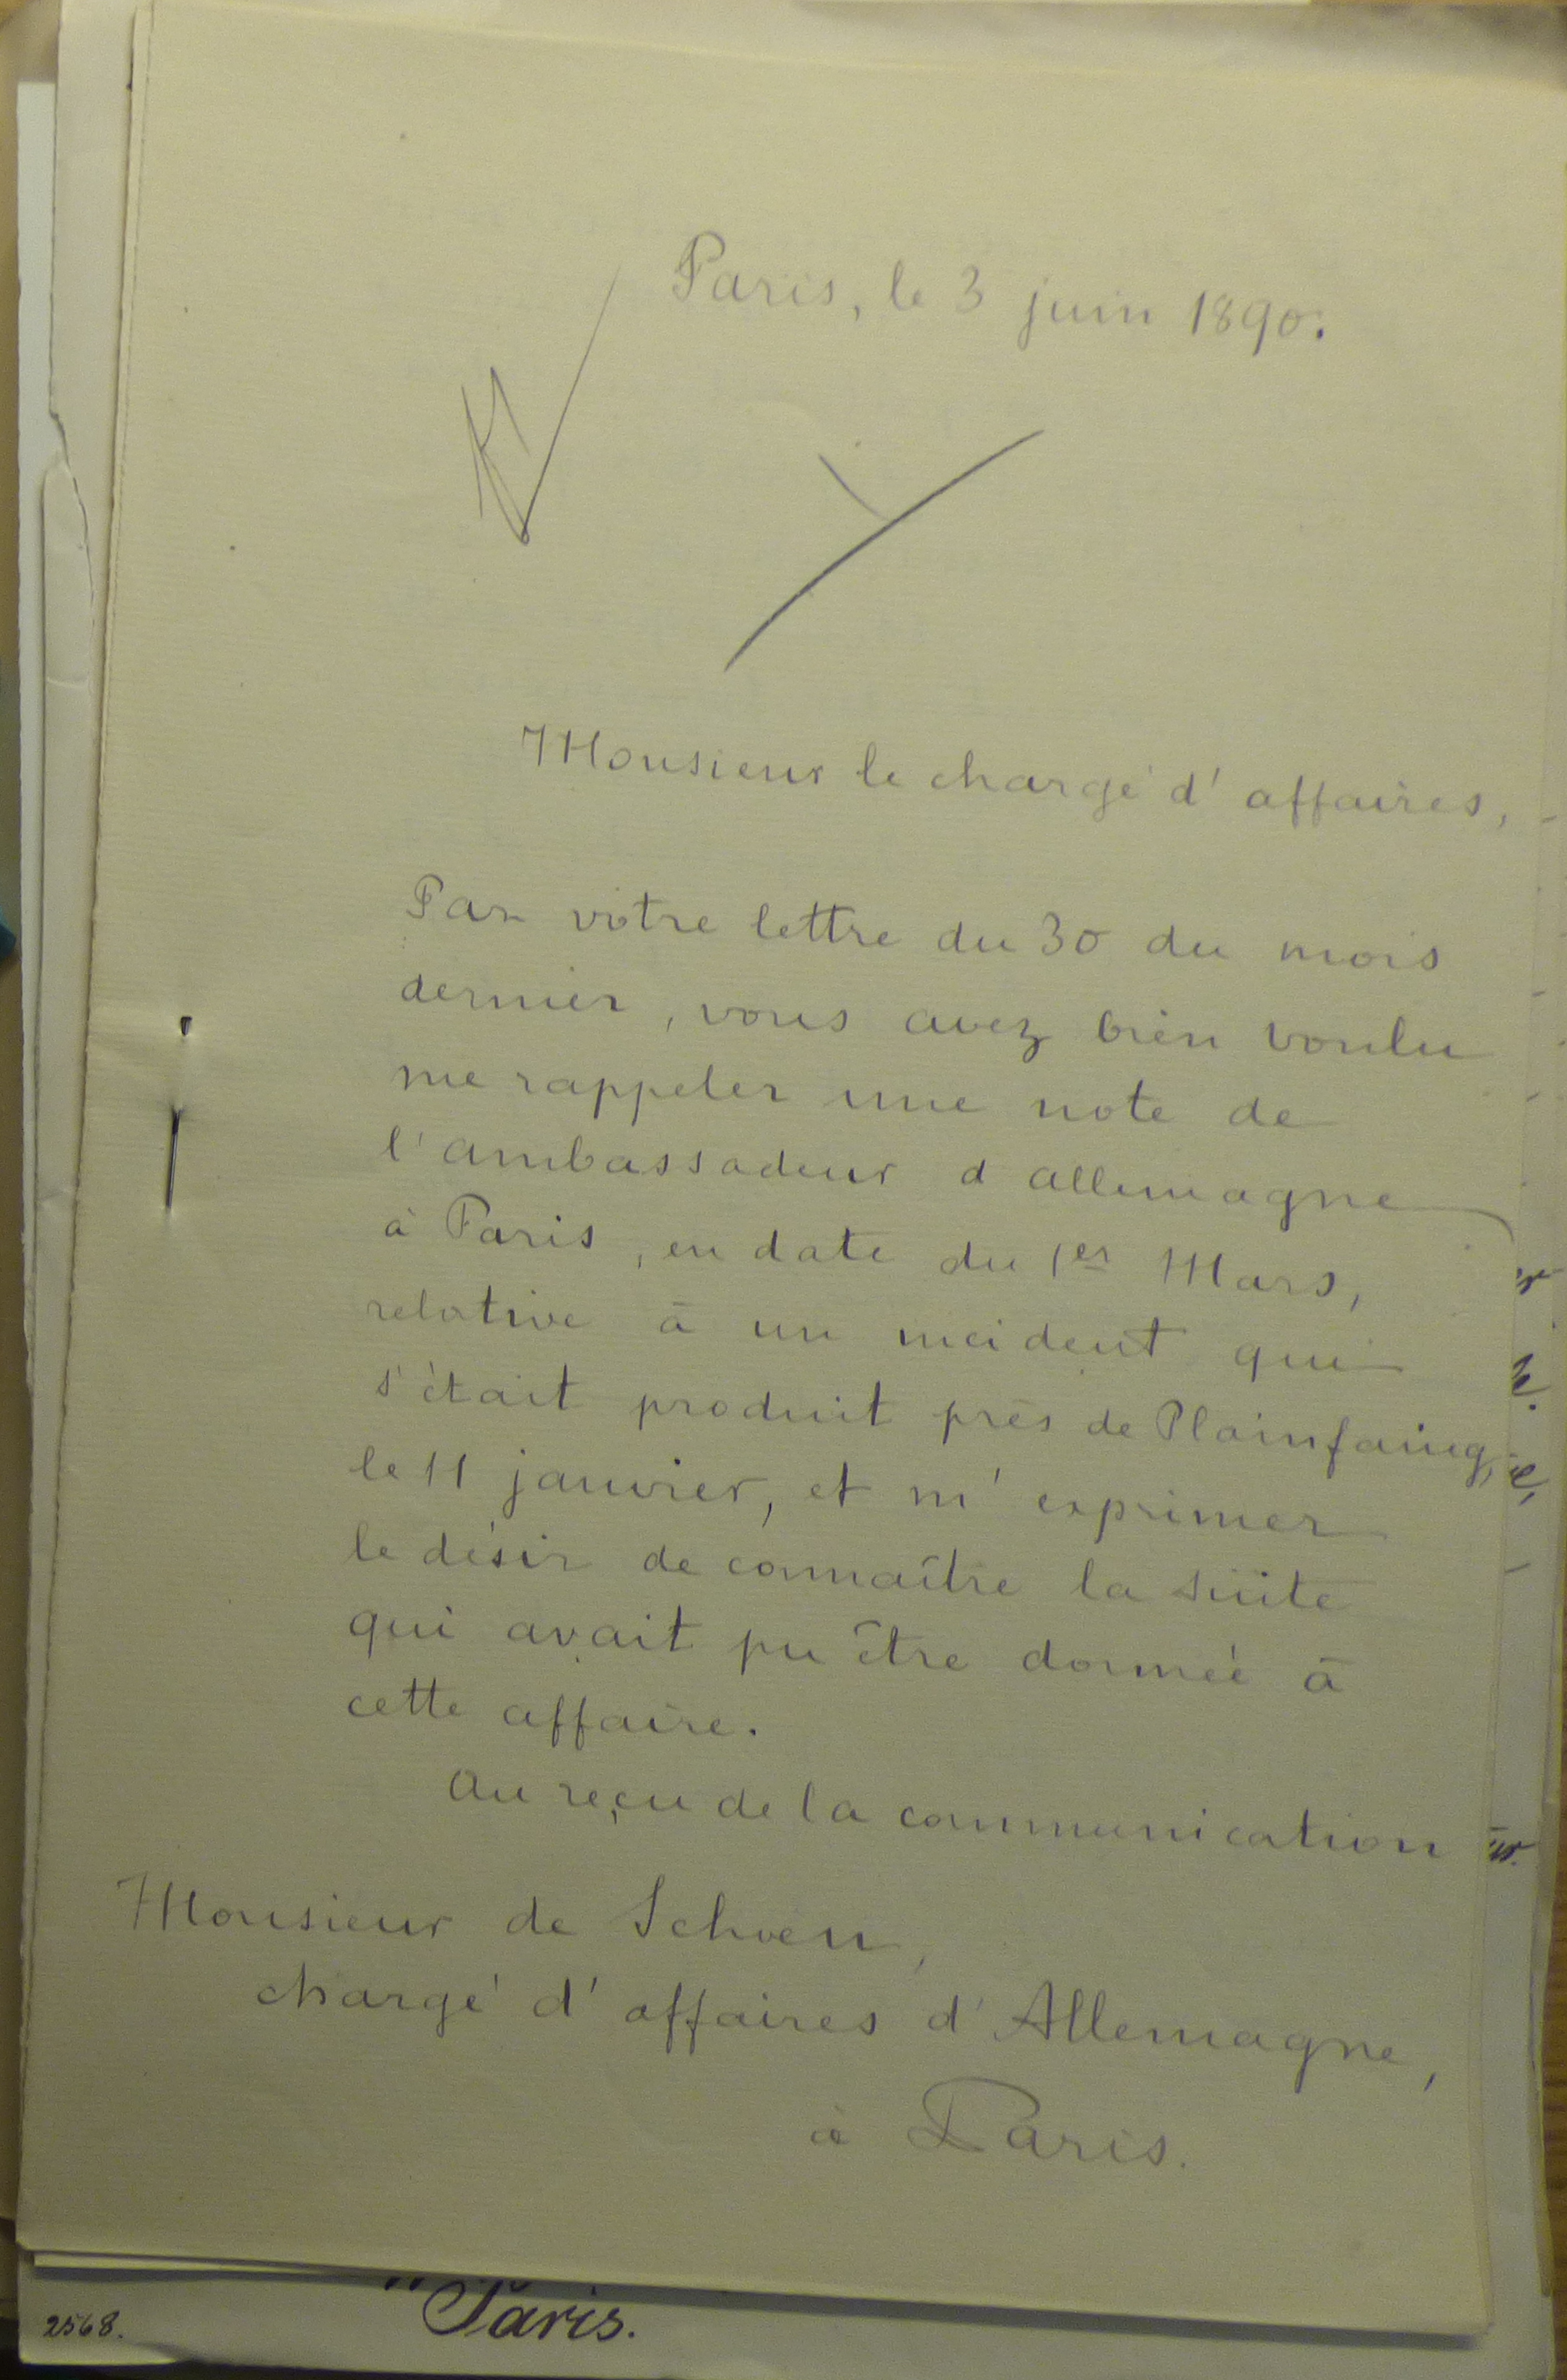 Paris, le 3 juin 1890.
Monsieur le chargé d' affaires,
Par votre lettre du 30 du mois
dernier, vous avez bien voulu
me rappeler une note de
l'ambassadeur d allemagne
à Paris, en date du 1er Mars,
relative à un incident qui
s'était produit près de Plainfaing,
le 11 janvier, et m' exprimer
le désir de connaître la suite
qui avait pu être donnée à
cette affaire.
Au reçu de la communication
Monsieur de Schoen,
chargé d' affaires d' Allemagne,
à Paris.
Paris.
2568.